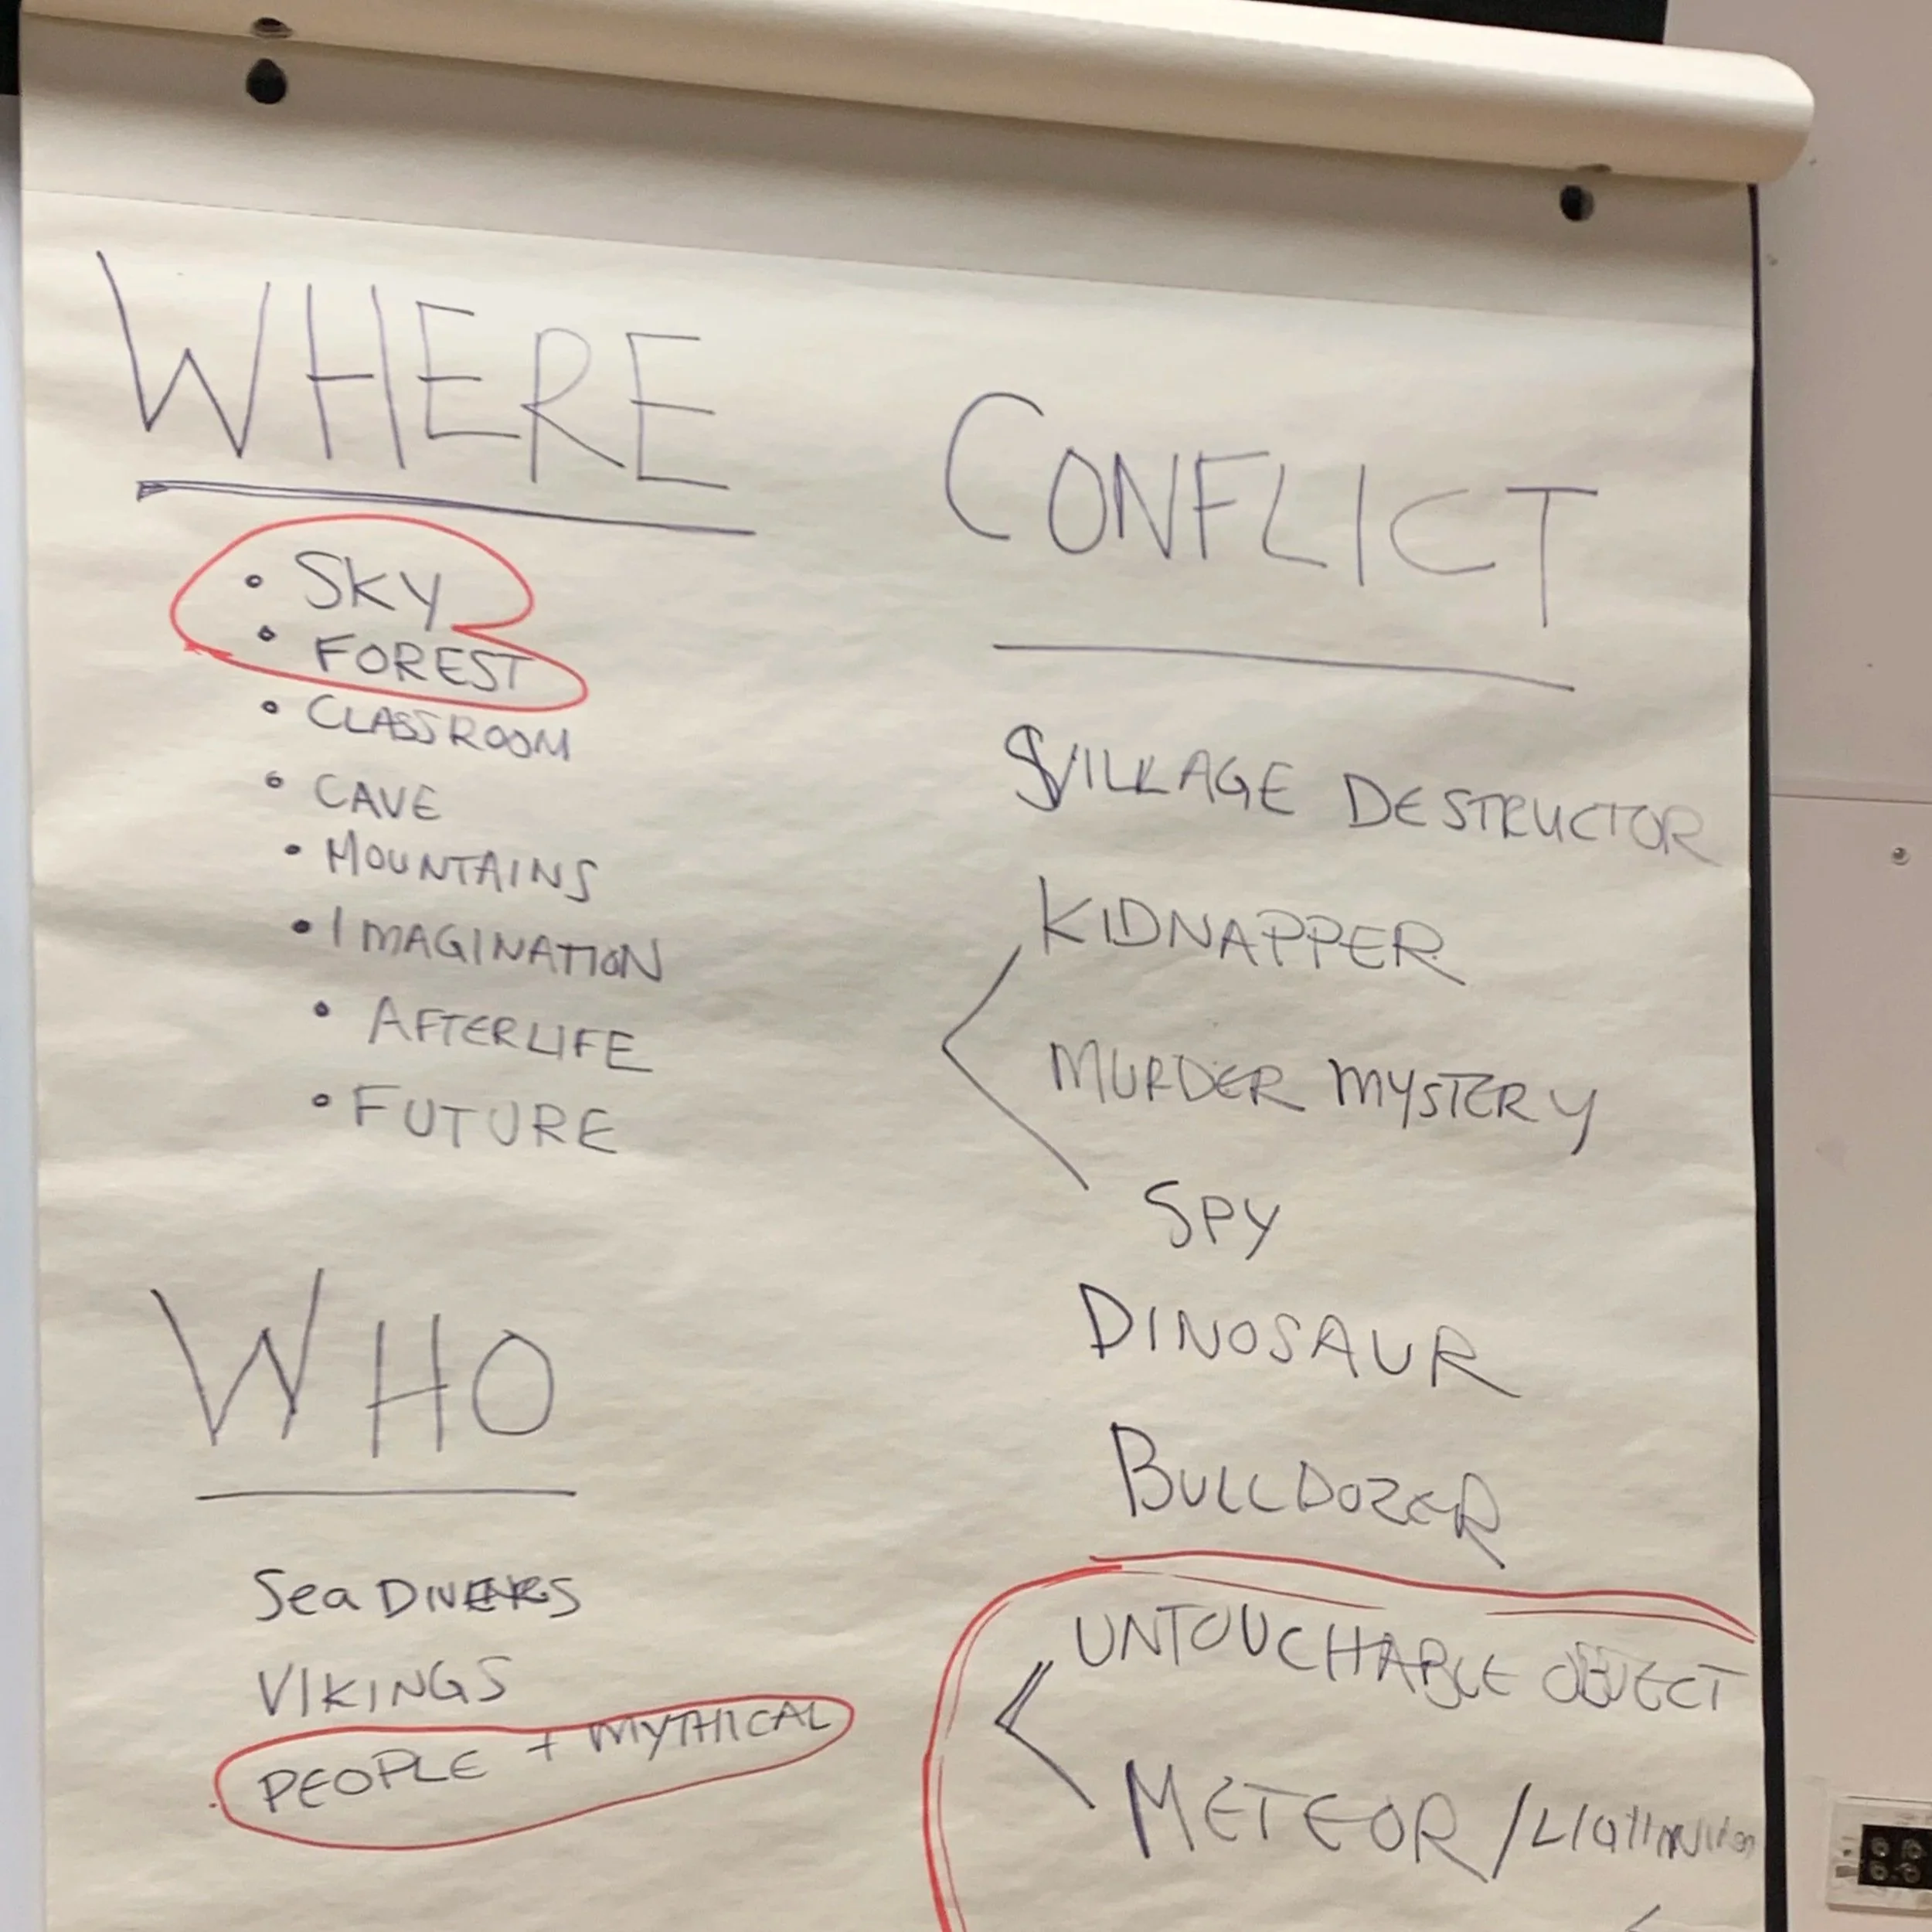 WHERE
• SKY
• FOREST
• CLASSROOM
• CAVE
• MOUNTAINS
• IMAGINATION
• AFTERLIFE
• FUTURE
WHO
Sea DIVERS
VIKINGS
PEOPLE + MYTHICAL
CONFLICT
VILLAGE DESTRUCTOR
KIDNAPPER
MURDER MYSTERY
SPY
DINOSAUR
BULLDOZER
UNTOUCHABLE OBJECT
METEOR /